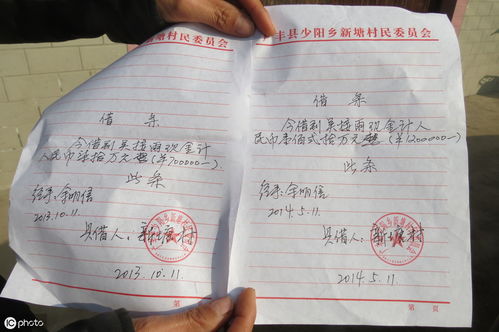 新塘村民委员会
借条
今借到吴接雨现金计
人民币柒拾万元整(¥700000—).
此条
经手:余明信
2013.10.11.
具借人:新塘村
2013.10.11.
第
丰县少阳乡新塘村民委员会
借条
今借到吴接雨现金计人
民币壹佰式拾万元整(¥1200000—)
此条
经手:余明信
2014.5.11.
具借人:新塘村
2014.5.11.
第 页
©IC photo